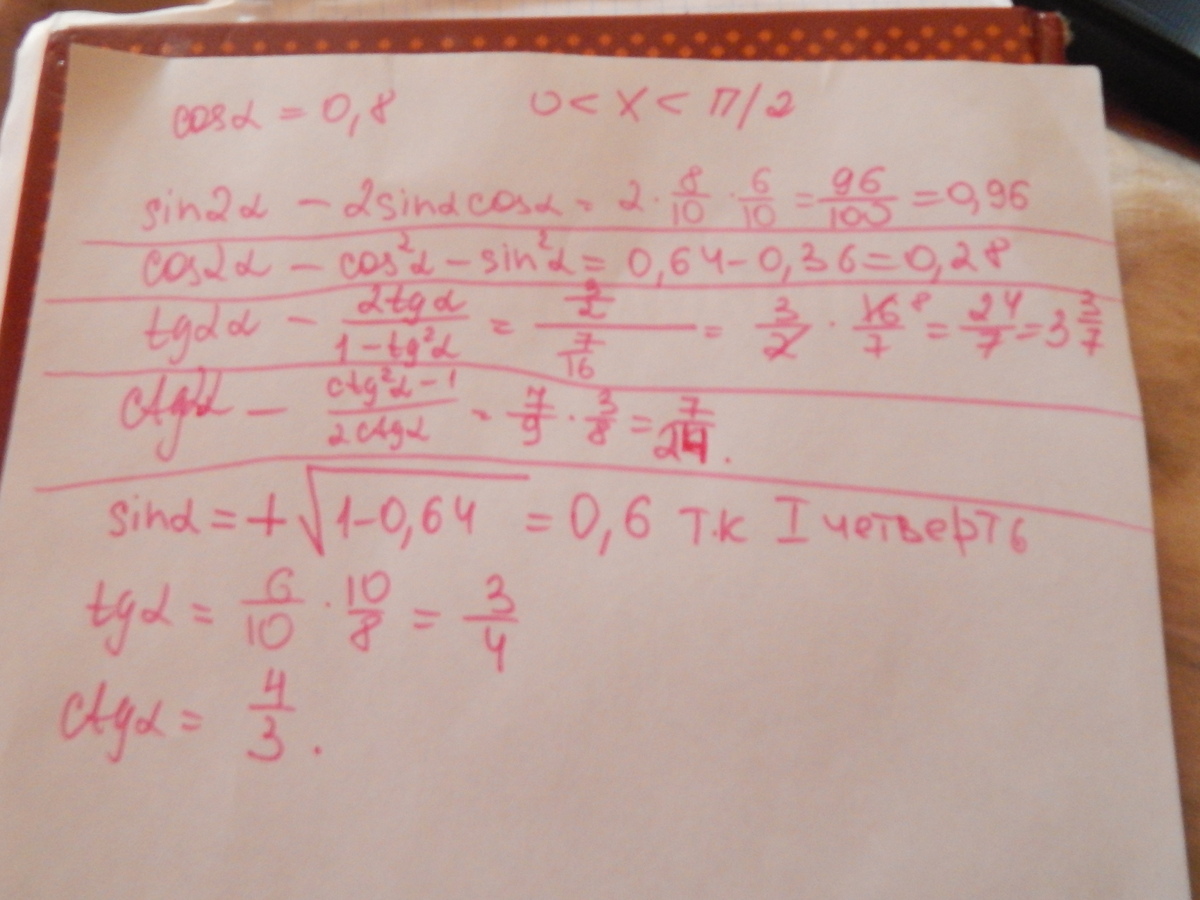 cosα = 0,8 0 < X < П/2
sin2α – 2sinαcosα = 2 · 8/10 · 6/10 = 96/100 = 0,96
cos2α – cos²α – sin²α = 0,64 – 0,36 = 0,28
tg2α – 2tgα/(1 – tg²α) = (3/2)/(7/16) = 3/2 · 16/7 8 = 24/7 = 3 3/7
ctg2α – (ctg²α – 1)/(2ctgα) = 7/9 · 3/8 = 7/24.
sinα = + √(1 – 0,64) = 0,6 т.к I четверть
tgα = 6/10 · 10/8 = 3/4
ctgα = 4/3.